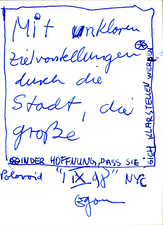 Mit unkloren
zielvorstellungen
durch die
Stadt, die
große
IN DER HOFFNUNG, DASS SIE
SICH KLARSTELLEN WERDEN
Poloroid "1 IX 98" NYC
Egon